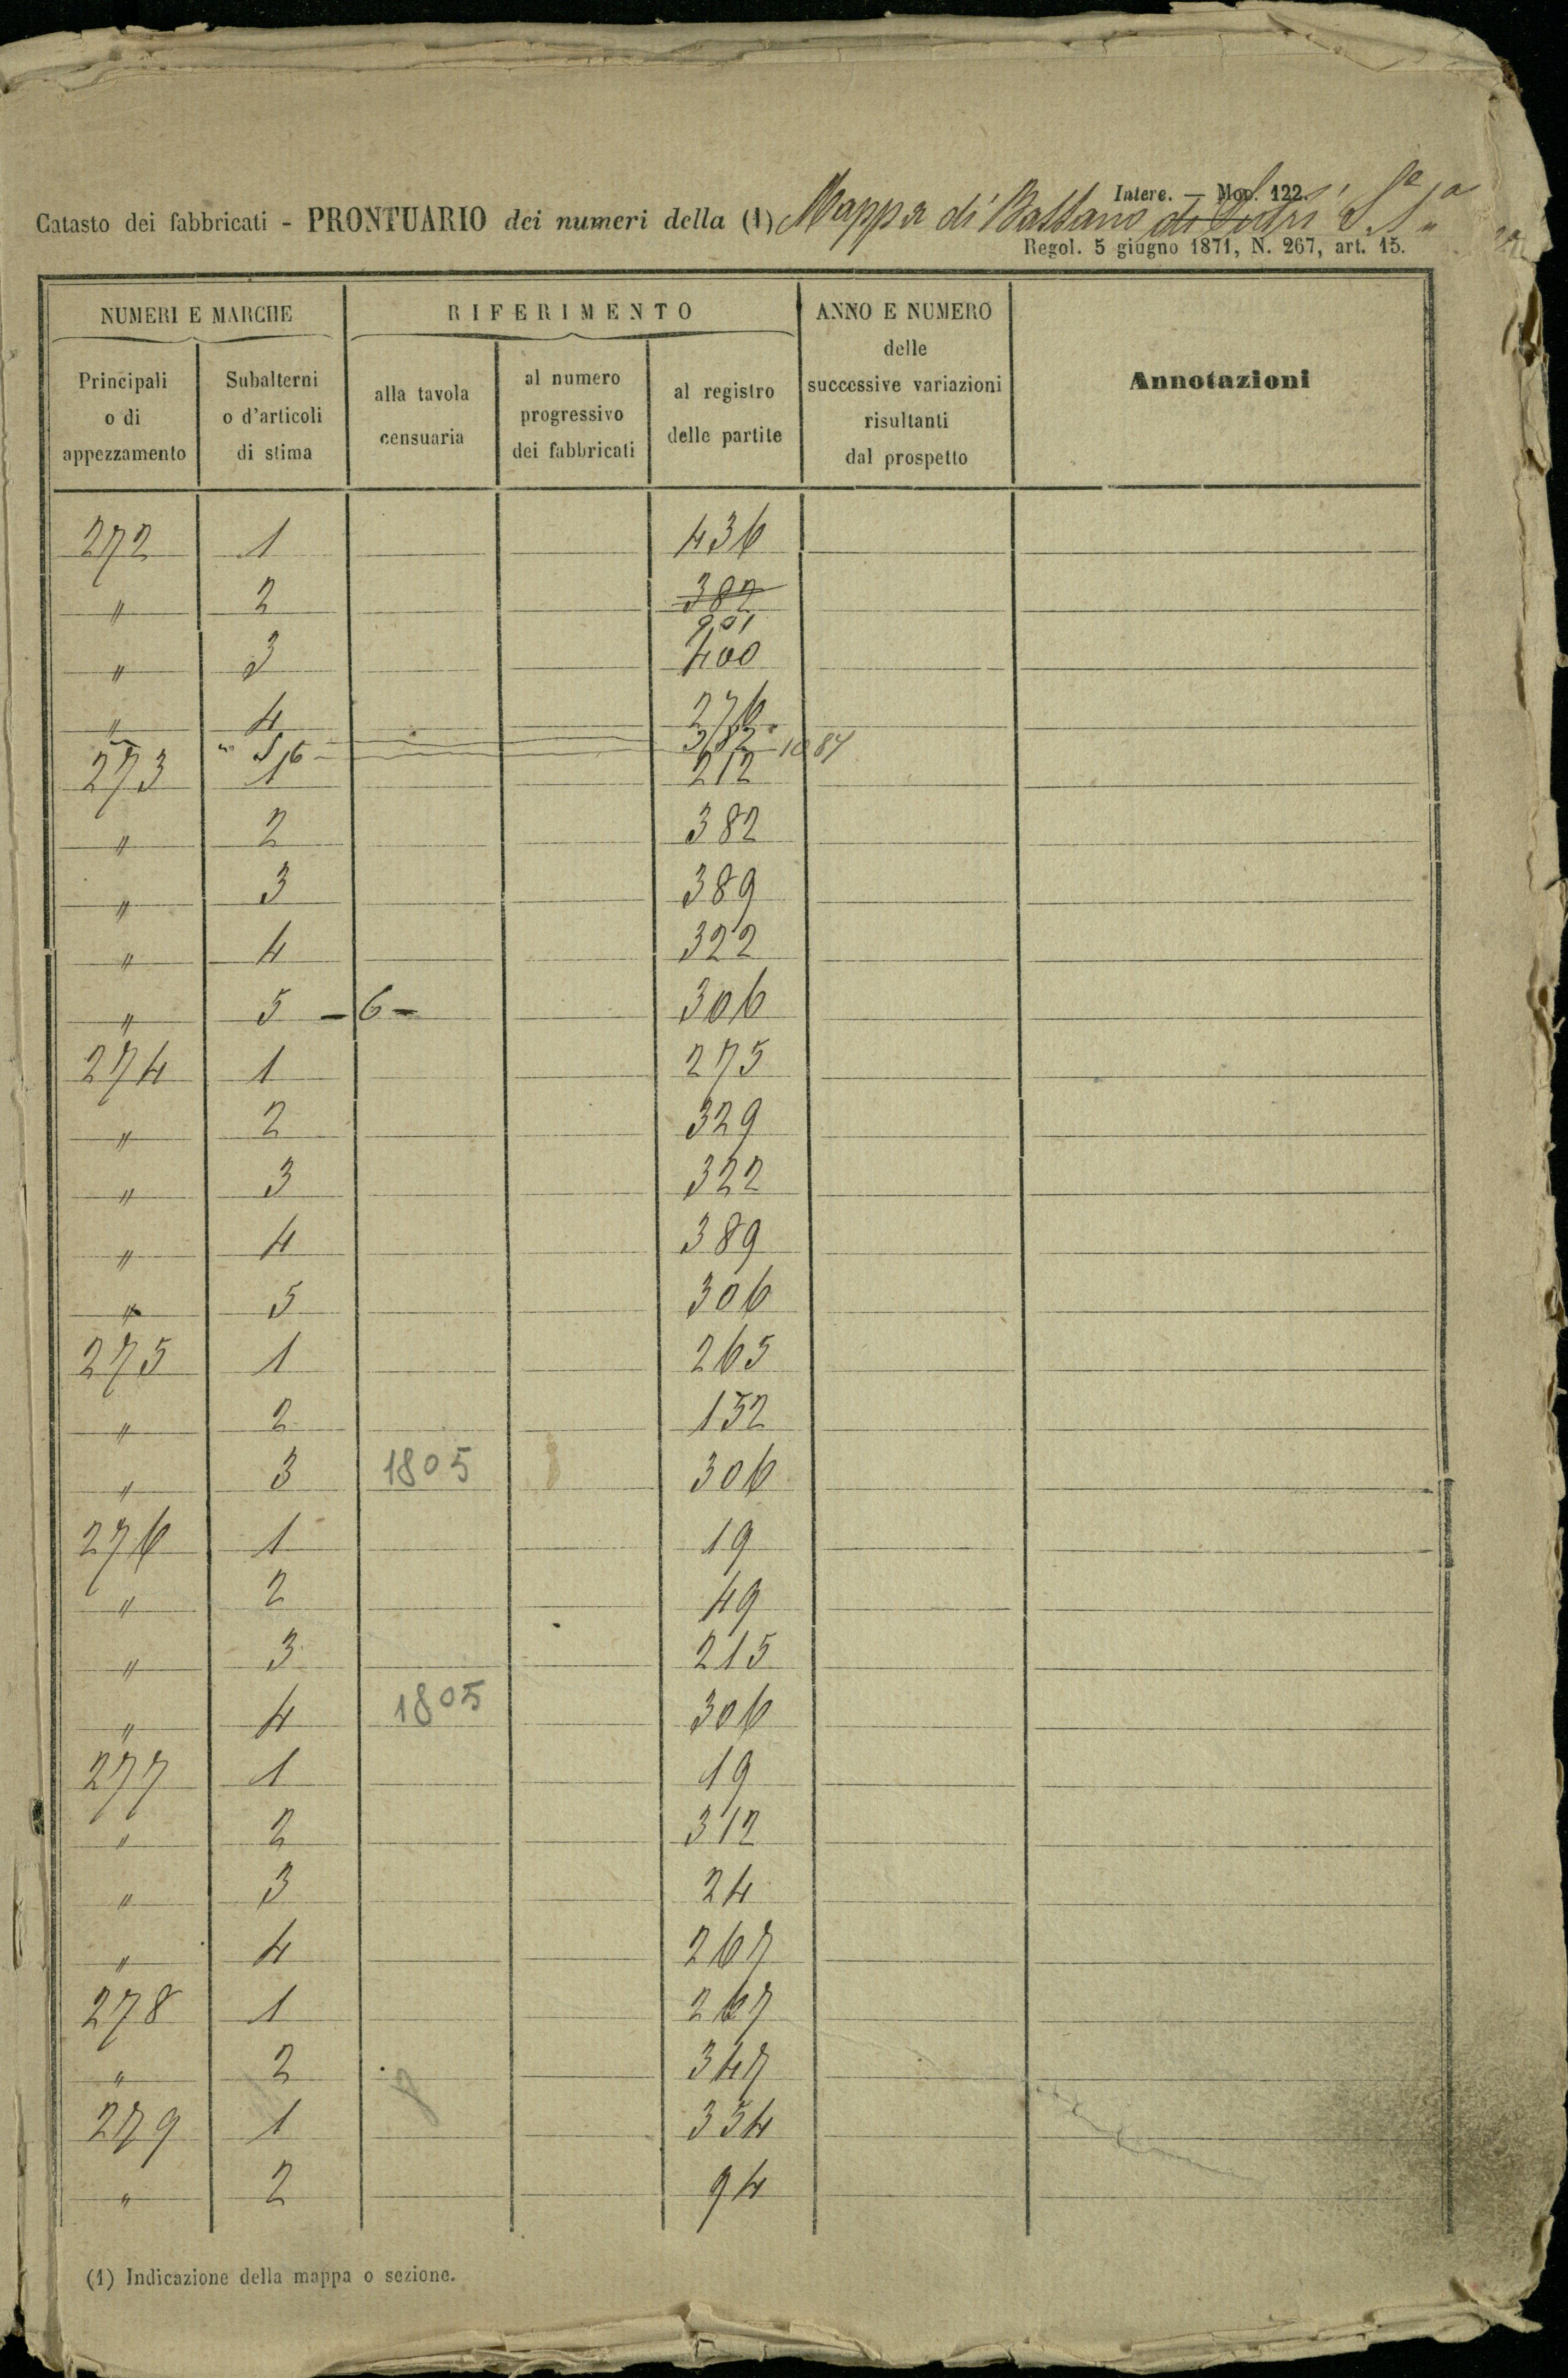 Intere. — Mod. 122.
Catasto dei fabbricati - PRONTUARIO dei numeri della (1) Mappa di Bassano di Sutri S.e 1a
Regol. 5 giugno 1871, N. 267, art. 15.
NUMERI E MARCHE RIFERIMENTO ANNO E NUMERO delle successive variazioni risultanti dal prospetto Annotazioni
Principali o di appezzamento Subalterni o d'articoli di stima alla tavola censuaria al numero progressivo dei fabbricati al registro delle partite
272 1 436
" 2 382
901
" 3 400
" 4 276
" 5 6 382 1087
273 1 212
" 2 382
" 3 389
" 4 322
" 5 - 6 - 306
274 1 275
" 2 329
" 3 322
" 4 389
" 5 306
275 1 265
" 2 152
" 3 1805 306
276 1 19
" 2 49
" 3 215
" 4 1805 306
277 1 19
" 2 312
" 3 24
" 4 267
278 1 267
" 2 347
279 1 334
" 2 94
(1) Indicazione della mappa o sezione.